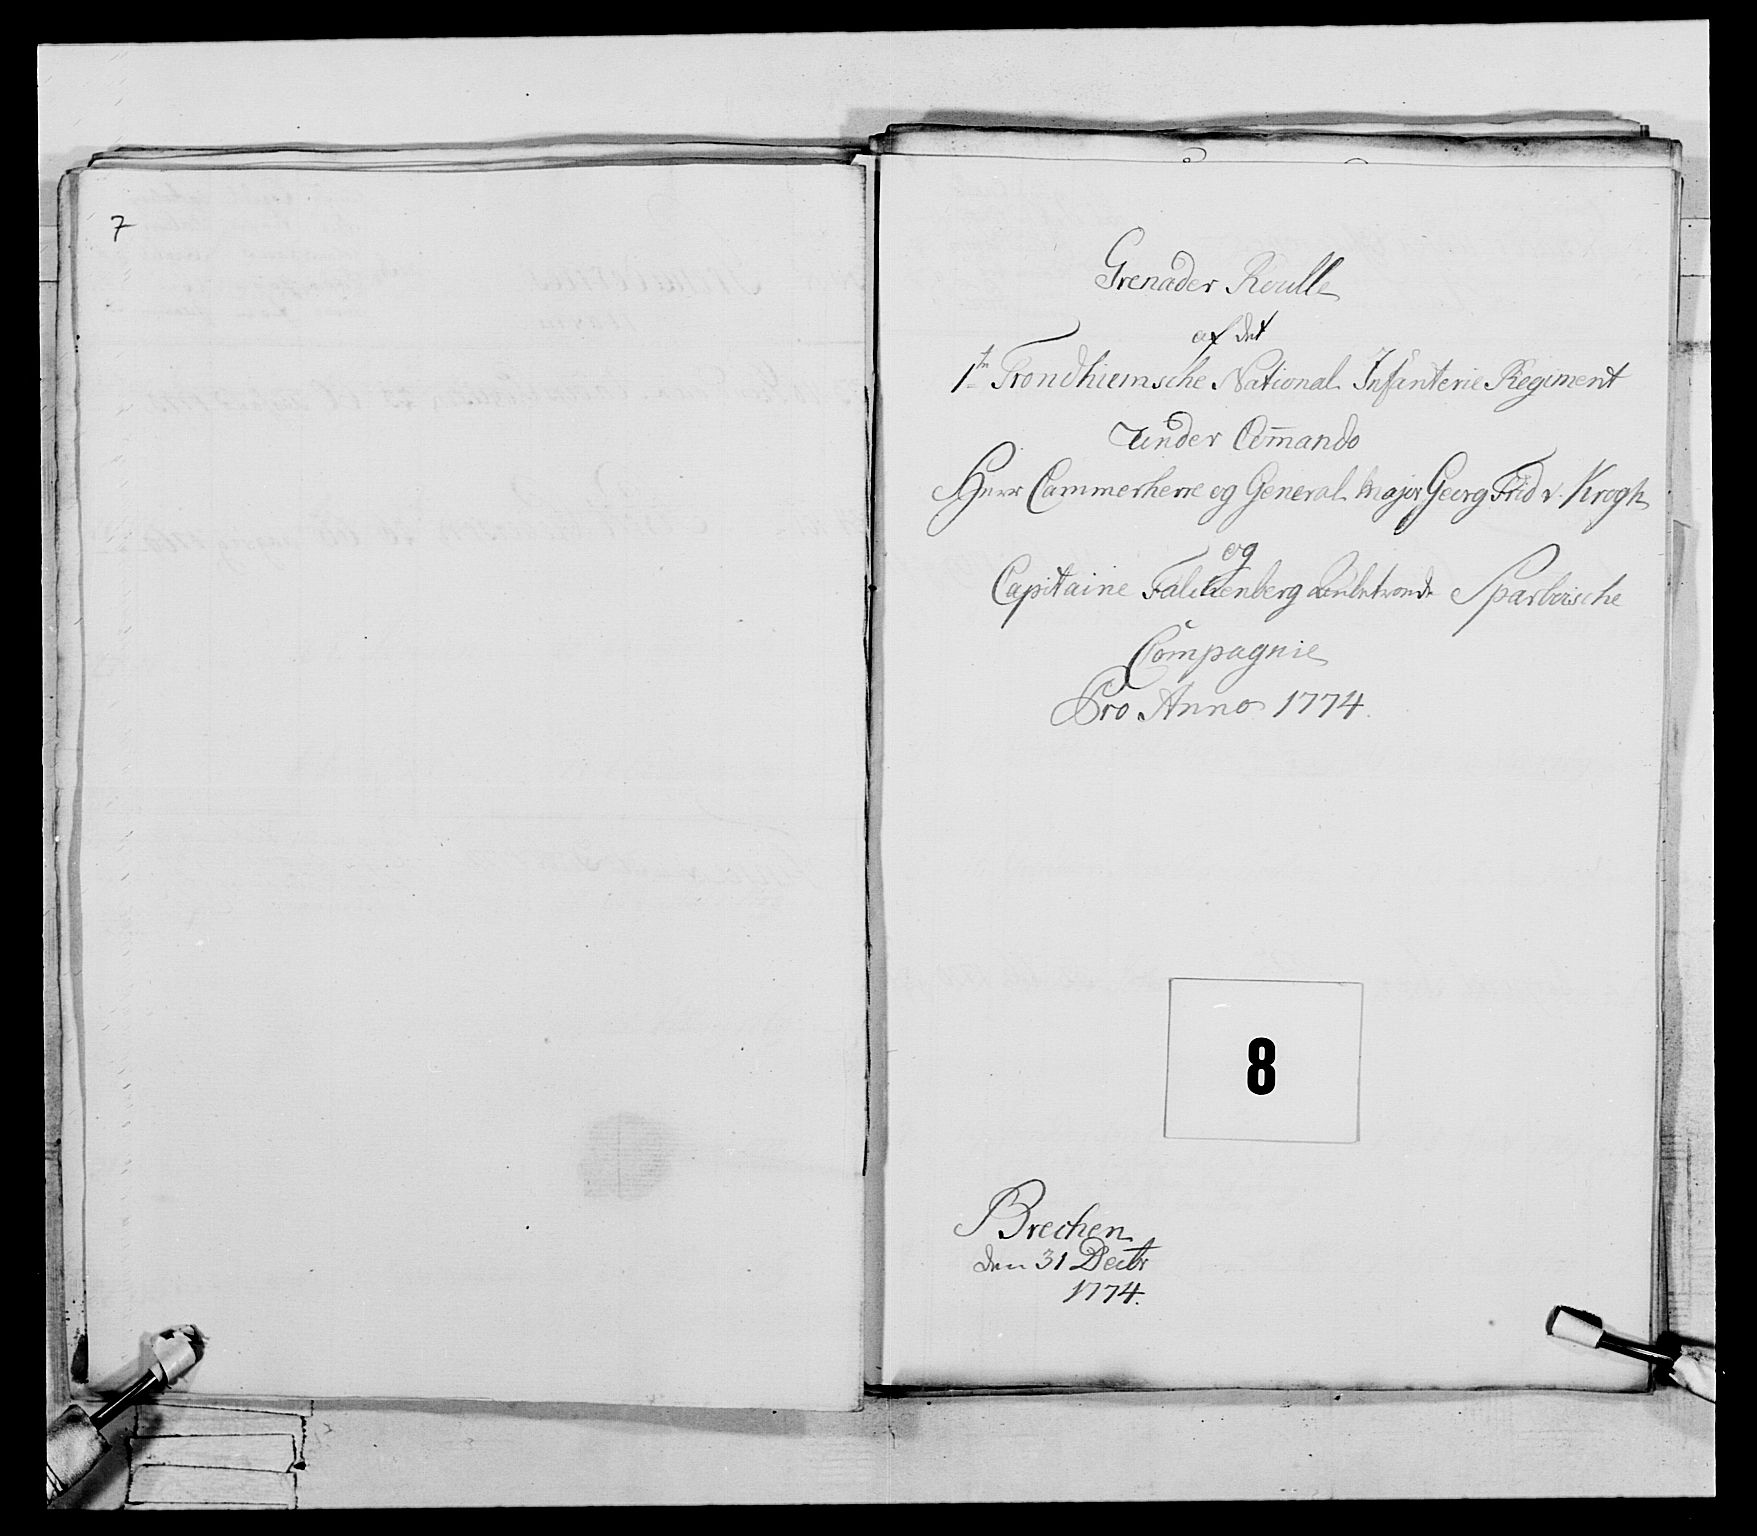 7
Grenader Roulle
af det
1te Trondhiemsche National Infanterie Regiment
Under Com̄ando
Herr Cammerherre og General Major Georg Frid v. Krogh
og
Capitaine Falckenberg Anbetroede Sparboische
Compagnie
Pro Anno 1774.
8
Brechen
den 31 Decbr
1774.